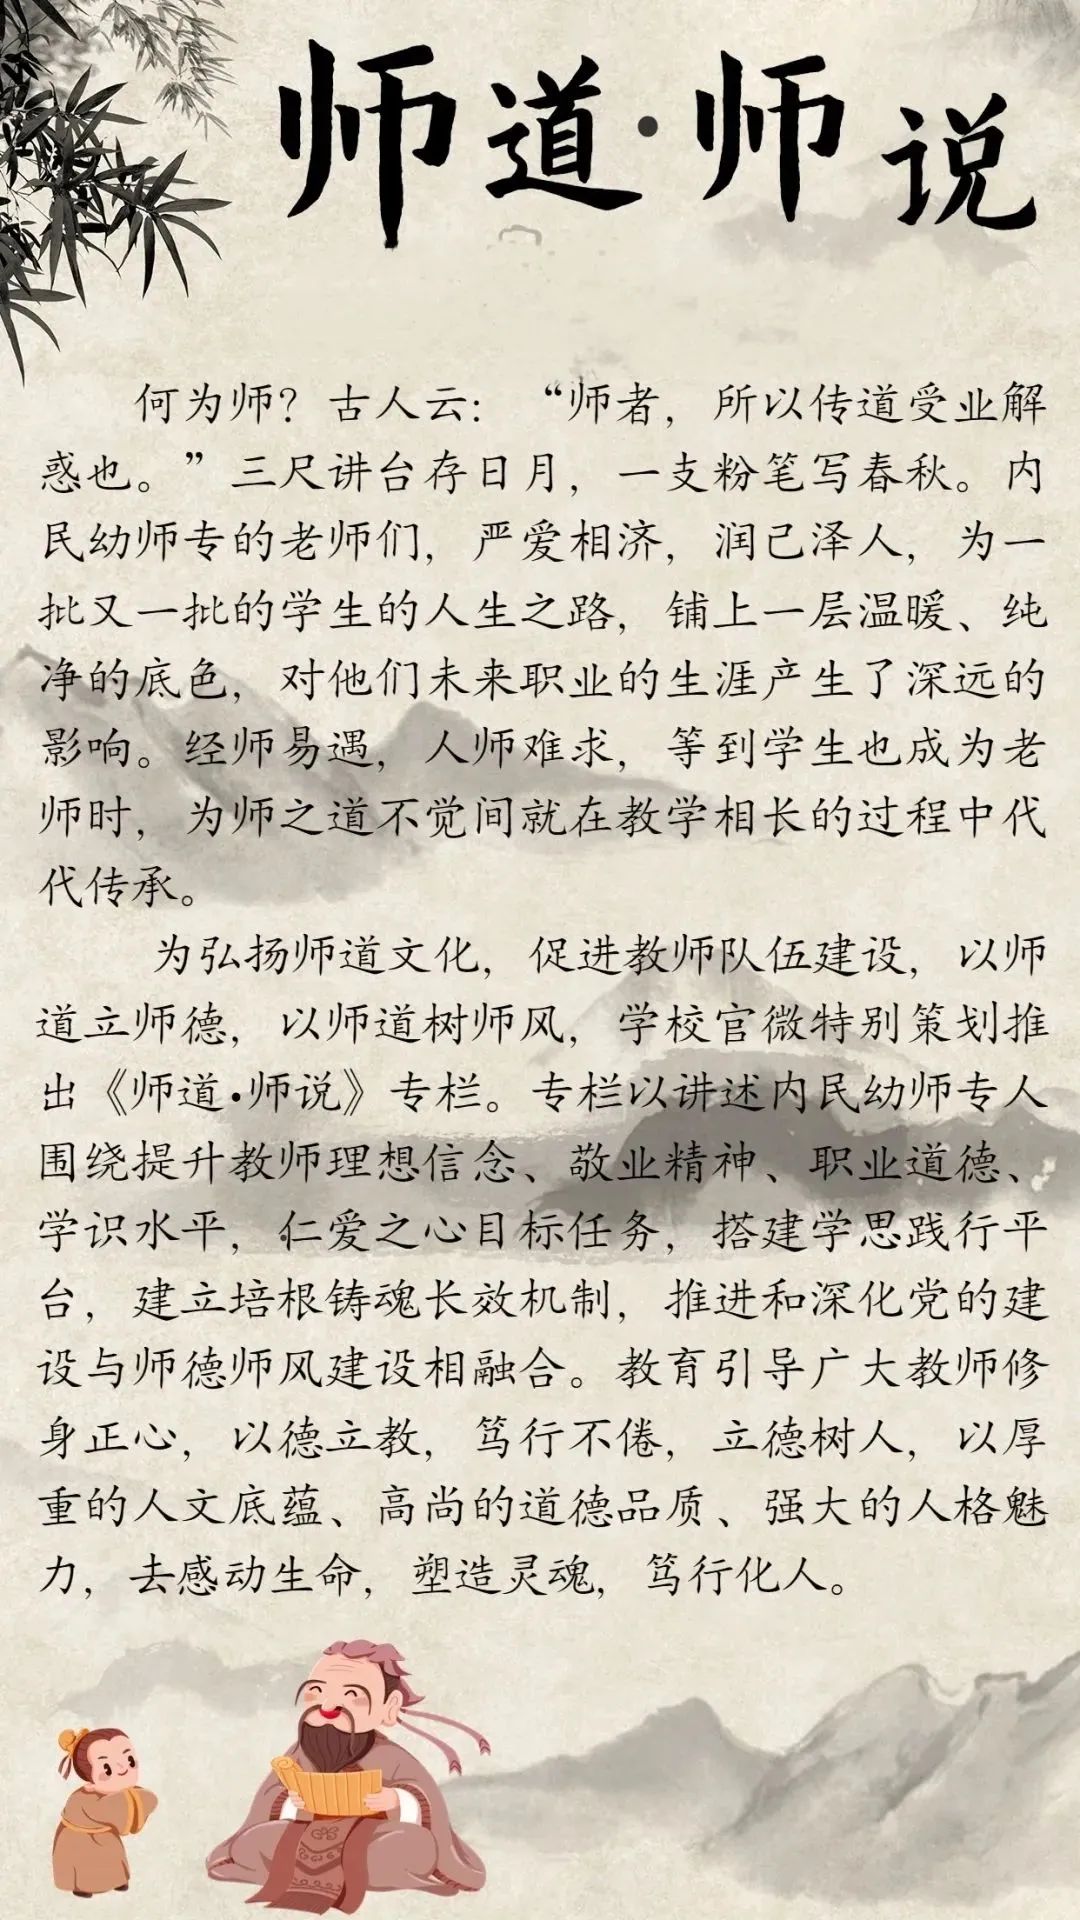 师道·师说
何为师？古人云：“师者，所以传道受业解
惑也。”三尺讲台存日月，一支粉笔写春秋。内
民幼师专的老师们，严爱相济，润己泽人，为一
批又一批的学生的人生之路，铺上一层温暖、纯
净的底色，对他们未来职业的生涯产生了深远的
影响。经师易遇，人师难求，等到学生也成为老
师时，为师之道不觉间就在教学相长的过程中代
代传承。
为弘扬师道文化，促进教师队伍建设，以师
道立师德，以师道树师风，学校官微特别策划推
出《师道•师说》专栏。专栏以讲述内民幼师专人
围绕提升教师理想信念、敬业精神、职业道德、
学识水平，仁爱之心目标任务，搭建学思践行平
台，建立培根铸魂长效机制，推进和深化党的建
设与师德师风建设相融合。教育引导广大教师修
身正心，以德立教，笃行不倦，立德树人，以厚
重的人文底蕴、高尚的道德品质、强大的人格魅
力，去感动生命，塑造灵魂，笃行化人。